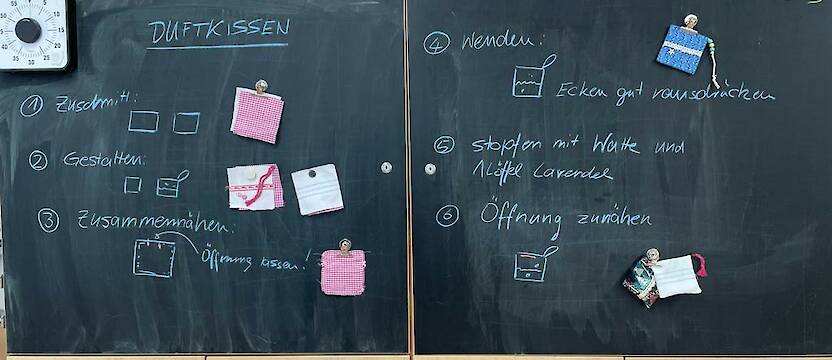 55
50
45
40
35
5
10
15
DUFTKISSEN
① Zuschnitt:
② Gestalten:
③ Zusammennähen:
Öffnung lassen!
④ Wenden:
Ecken gut rausdrücken
⑤ stopfen mit Watte und
1 Löffel Lavendel
⑥ Öffnung zunähen